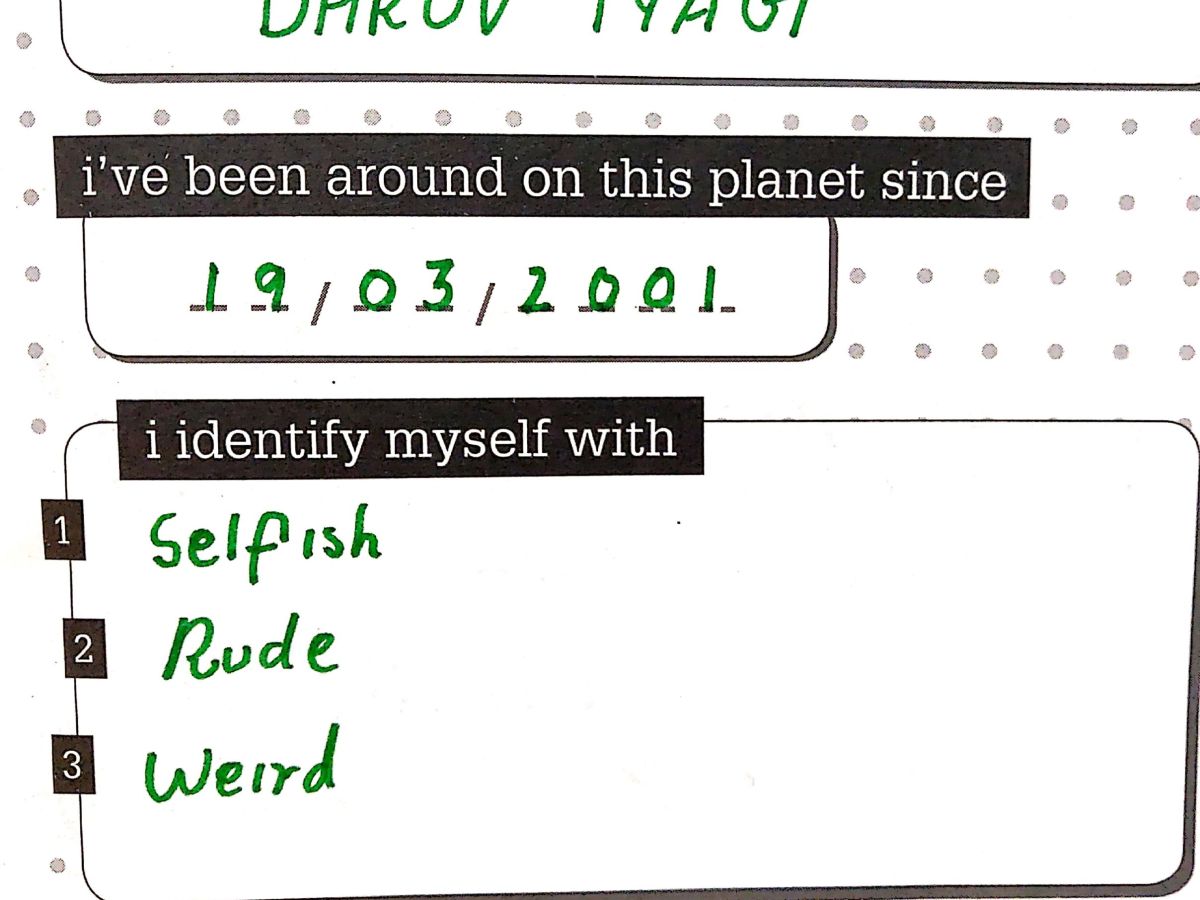 DHRUV TYAGI
i've been around on this planet since
19/03/2001
i identify myself with
1 Selfish
2 Rude
3 Weird